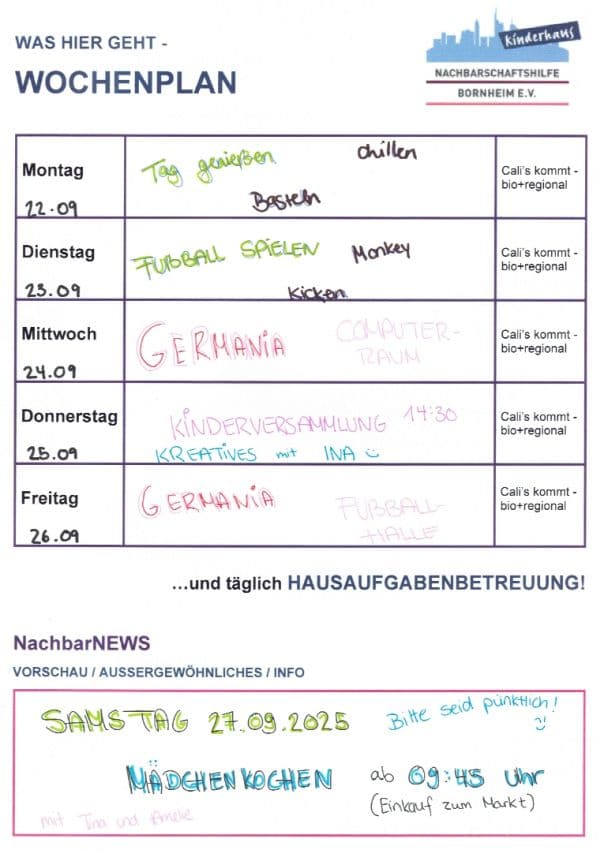 WAS HIER GEHT -
WOCHENPLAN
Kinderhaus
NACHBARSCHAFTSHILFE
BORNHEIM E.V.
Montag
22.09
Tag genießen
Chillen
Basteln
Cali's kommt -
bio+regional
Dienstag
23.09
FUßBALL SPIELEN
Monkey
Kicken
Cali's kommt -
bio+regional
Mittwoch
24.09
GERMANIA
COMPUTER-
RAUM
Cali's kommt -
bio+regional
Donnerstag
25.09
KINDERVERSAMMLUNG 14:30
KREATIVES mit INA
Cali's kommt -
bio+regional
Freitag
26.09
GERMANIA
FUßBALL-
HALLE
Cali's kommt -
bio+regional
...und täglich HAUSAUFGABENBETREUUNG!
NachbarNEWS
VORSCHAU / AUSSERGEWÖHNLICHES / INFO
SAMSTAG 27.09.2025
Bitte seid pünktlich!
MÄDCHENKOCHEN ab 09:45 Uhr
(Einkauf zum Markt)
mit Tina und Amelie